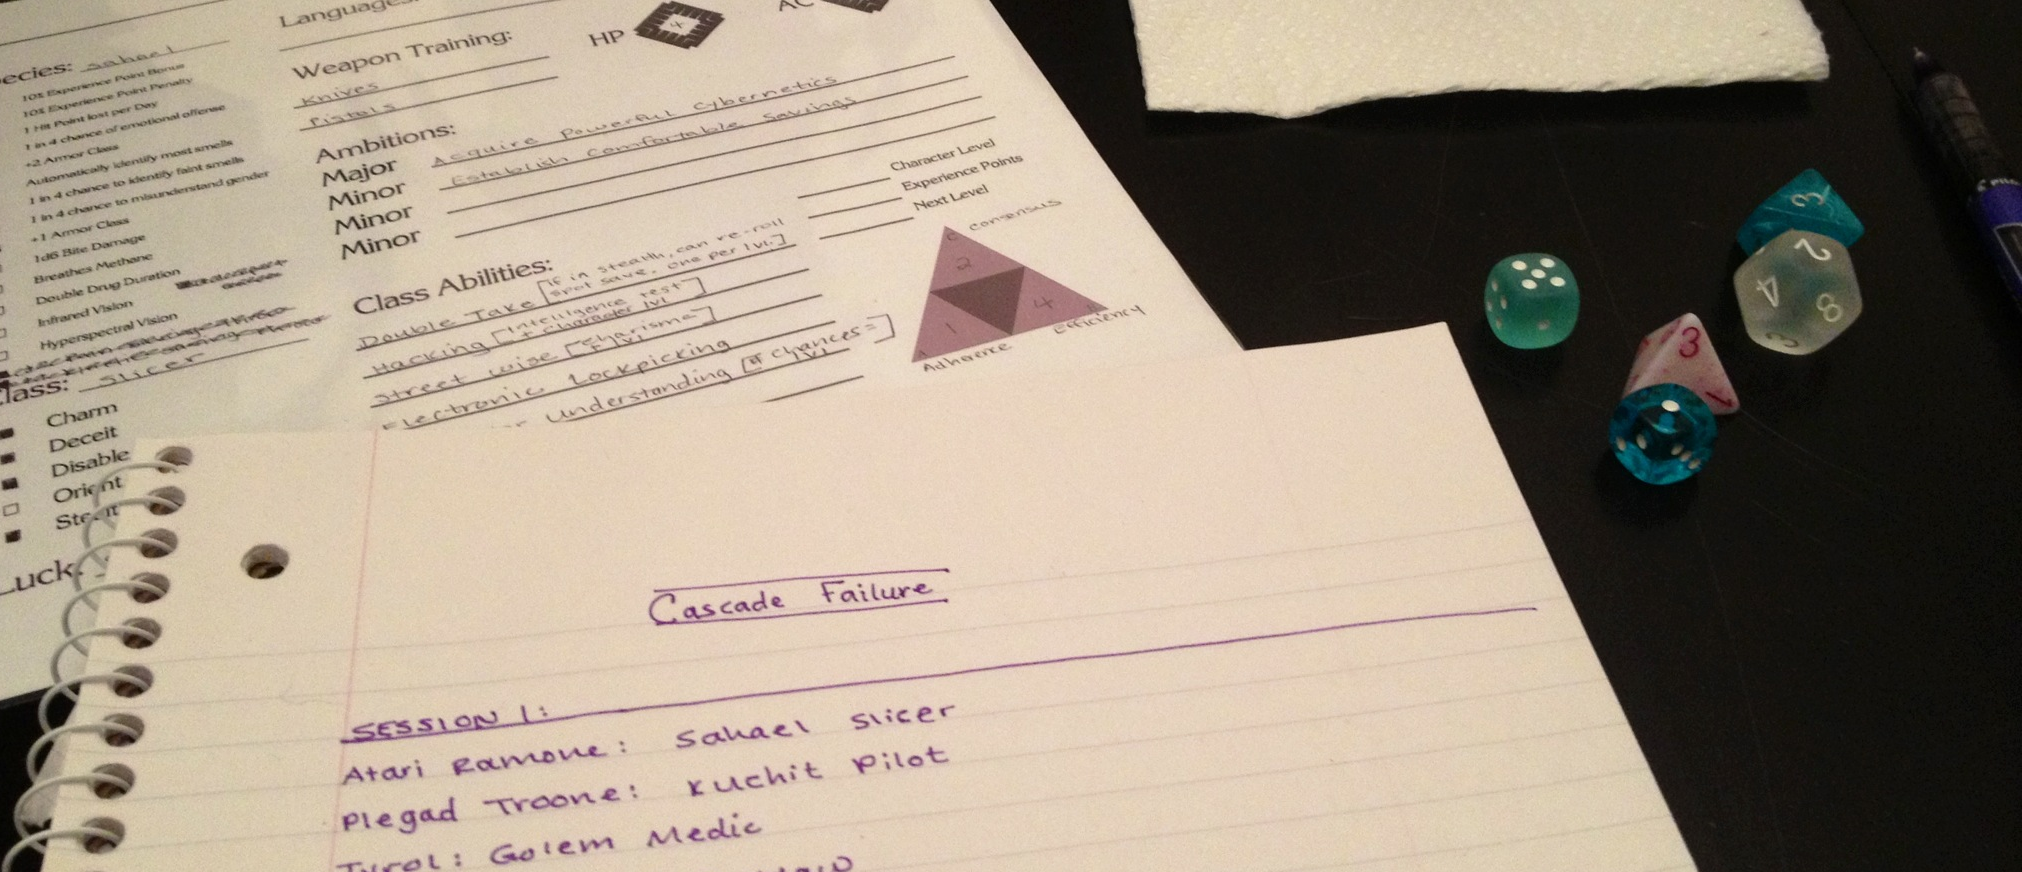 Languages:
HP 4
AC
ecies: Sahael
10% Experience Point Bonus
10% Experience Point Penalty
1 Hit Point lost per Day
1 in 4 chance of emotional offense
+2 Armor Class
Automatically identify most smells
1 in 4 chance to identify faint smells
1 in 4 chance to misunderstand gender
+1 Armor Class
1d6 Bite Damage
Breathes Methane
Double Drug Duration
Infrared Vision
Hyperspectral Vision
lass: Slicer
Charm
Deceit
Disable
Orient
Luck:
Weapon Training:
Knives
Pistols
Ambitions:
Major Acquire Powerful Cybernetics
Minor Establish Comfortable Savings
Minor
Minor
Character Level
Experience Points
Next Level
Class Abilities:
Double Take [If in stealth, can re-roll
spot save, one per lvl.]
Hacking [Intelligence test
+ character lvl]
Street wise [charisma
+ lvl]
Electronic Lockpicking
Understanding [# chances =
lvl]
C consensus
2
1 4
Adhere Efficiency
Cascade Failure
SESSION 1:
Atari Ramone: Sahael Slicer
Plegad Troone: Kuchit Pilot
Tyrol: Golem Medic
3
2
4 8
3